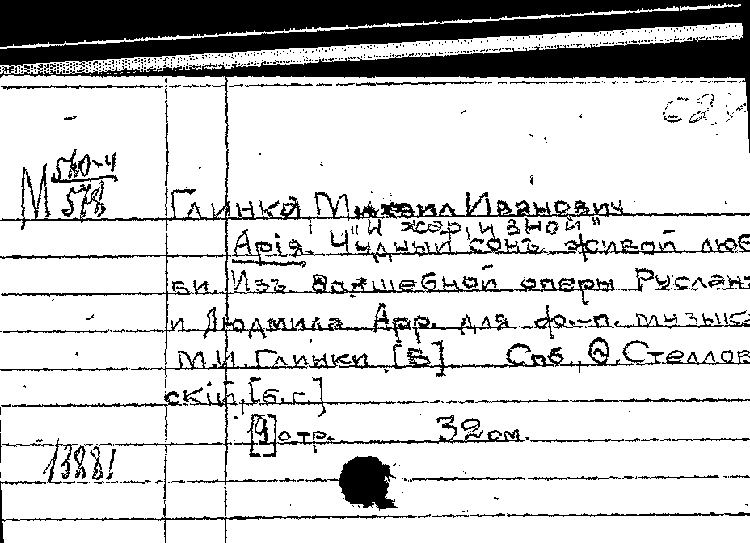 М 560-4
578
Глинка, Михаил Иванович
"И жар, и зной"
Арiя. Чудный сонъ живой люб
ви. Изъ волшебной оперы Русланъ
и Людмила Арр. для ф.-п. музыка
М.И. Глинки [Б] Спб., Ѳ. Стеллов
скiй, [б.г.]
[9] стр. 32 см.
13881